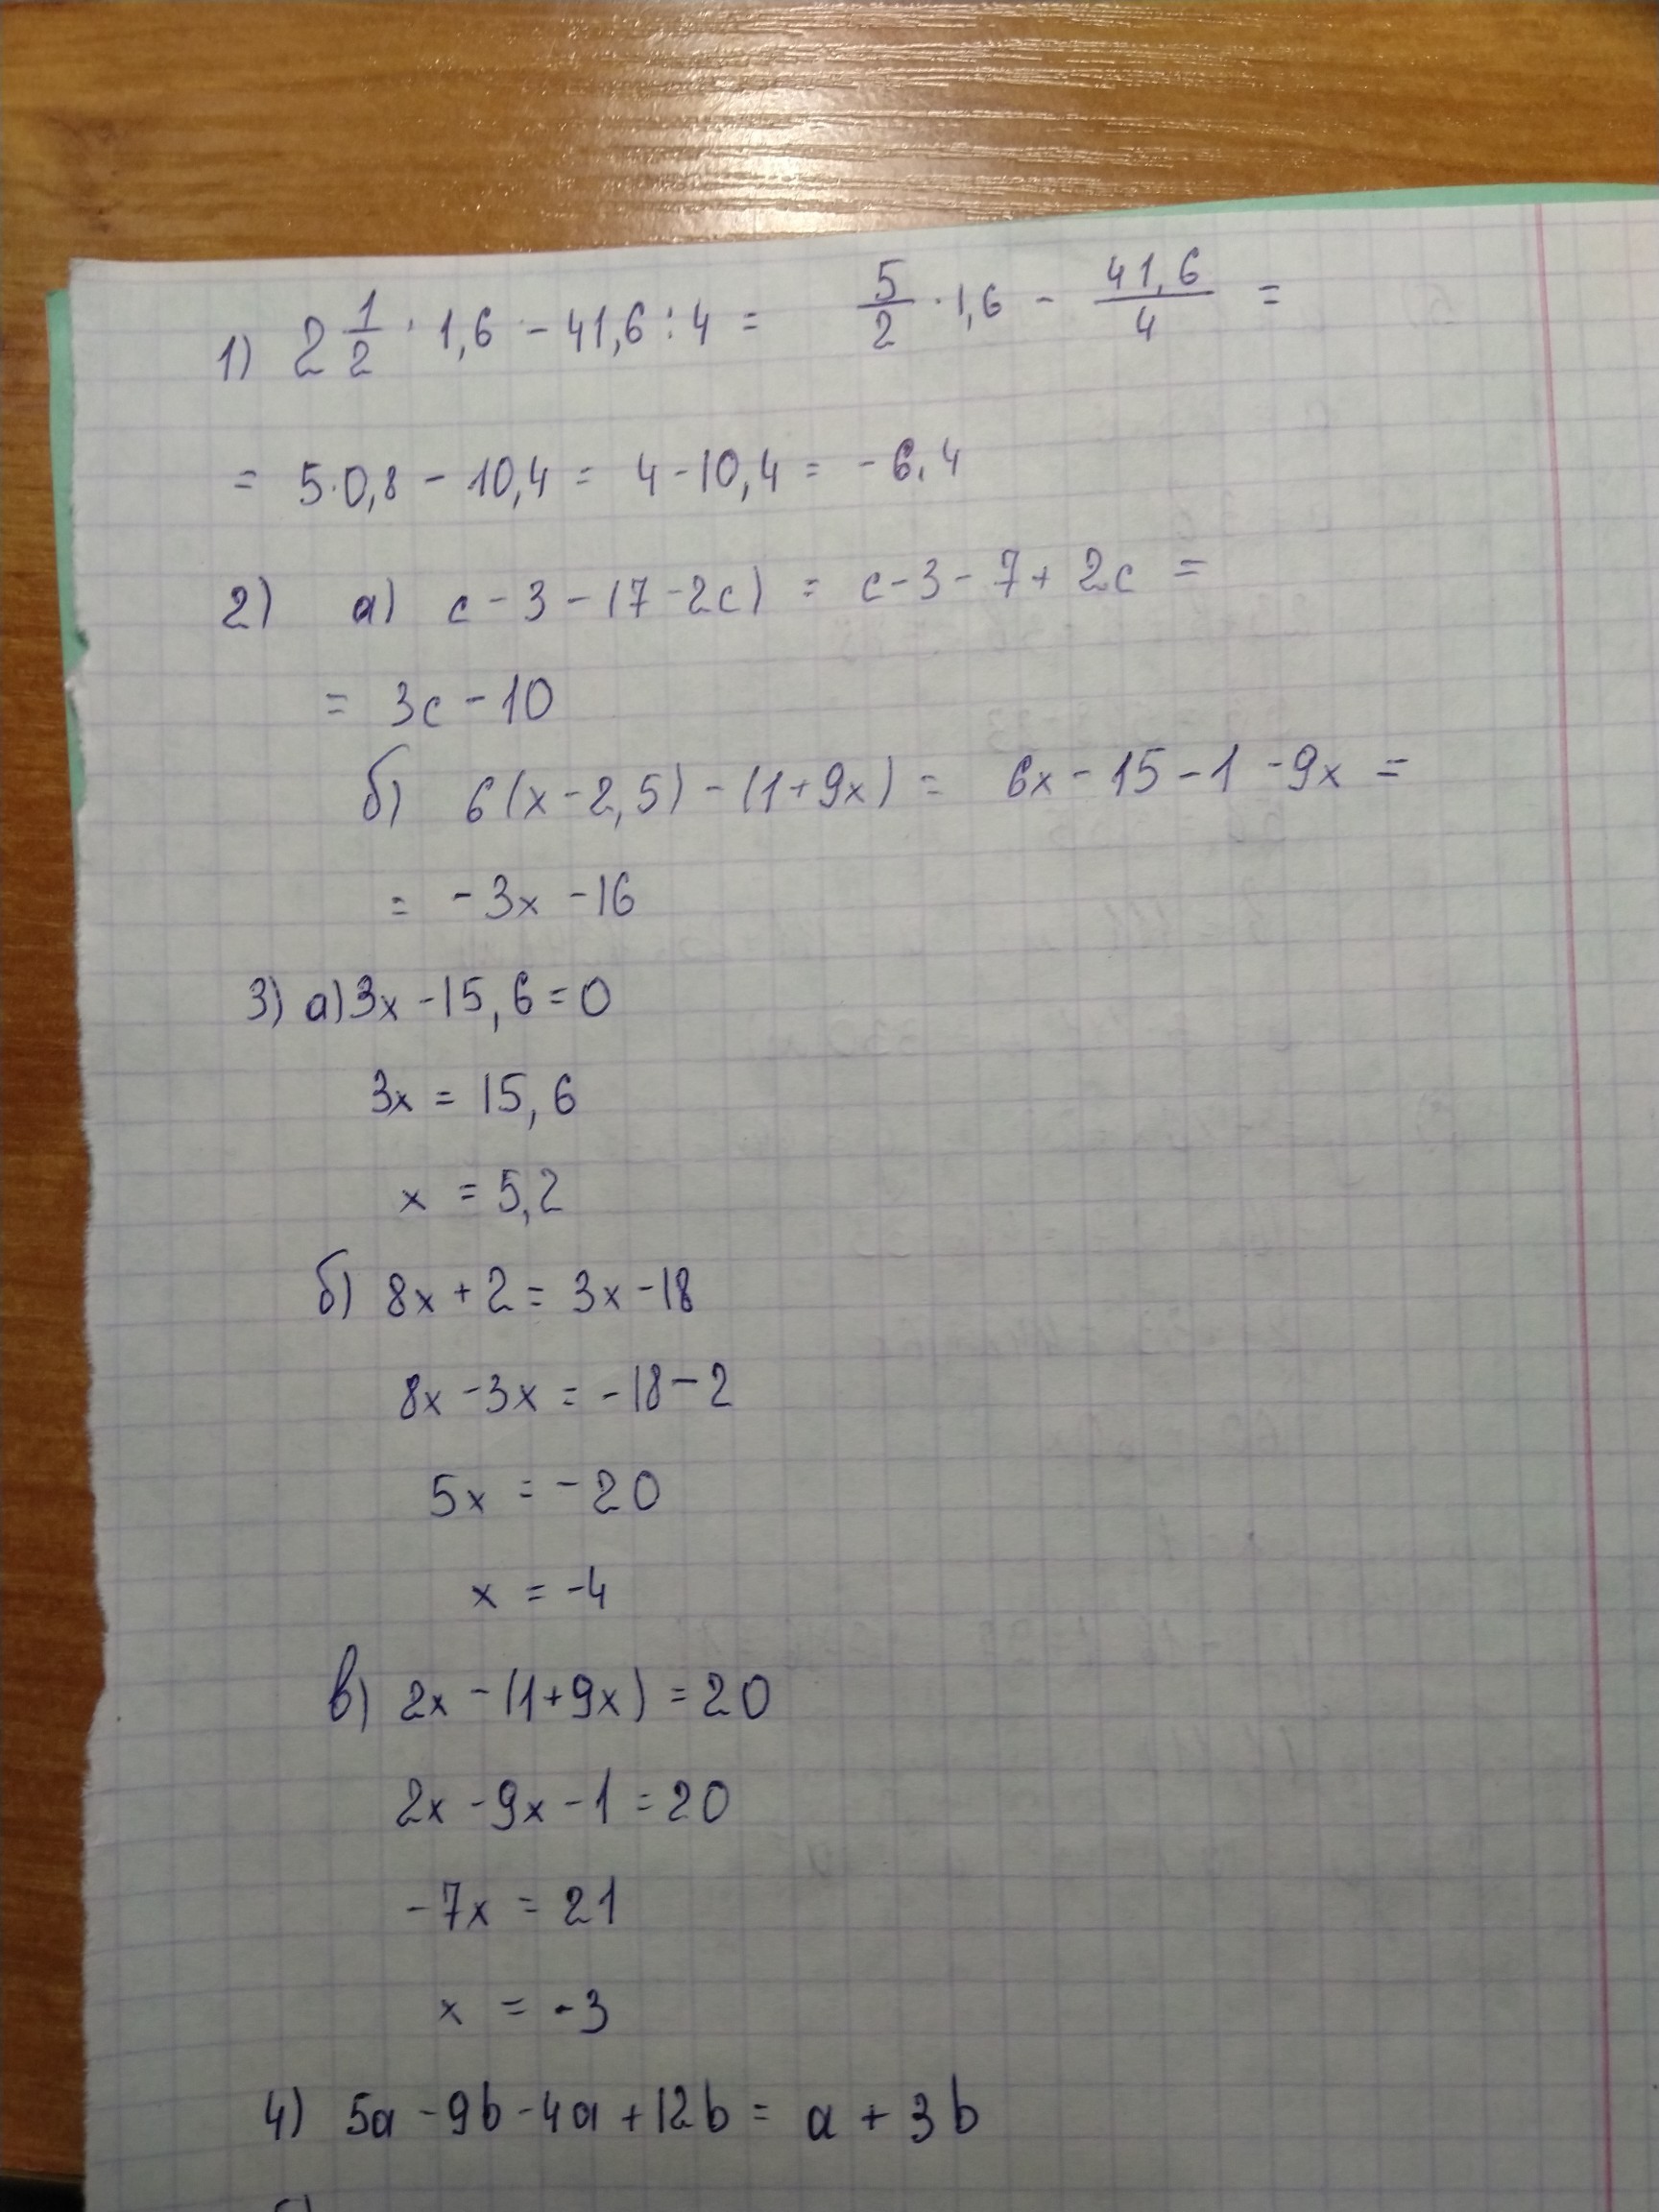 1) 2 1/2 · 1,6 - 41,6 : 4 = 5/2 · 1,6 - 41,6/4 =
= 5·0,8 - 10,4 = 4 - 10,4 = -6.4
2) а) c - 3 - (7 - 2c) = c - 3 - 7 + 2c =
= 3c - 10
б) 6(x - 2,5) - (1 + 9x) = 6x - 15 - 1 - 9x =
= -3x - 16
3) а) 3x - 15,6 = 0
3x = 15,6
x = 5,2
б) 8x + 2 = 3x - 18
8x - 3x = -18 - 2
5x = -20
x = -4
в) 2x - (1 + 9x) = 20
2x - 9x - 1 = 20
-7x = 21
x = -3
4) 5a - 9b - 4a + 12b = a + 3b